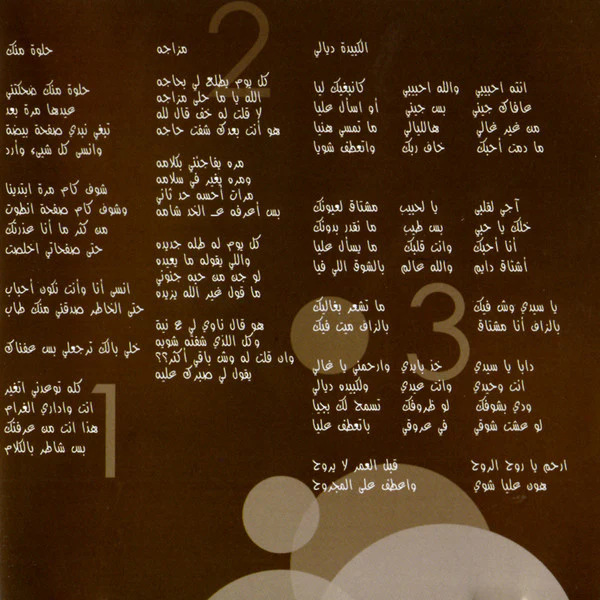 حلوة منك
حلوة منك ضحكتني
عيدها مرة بعد
تبغي نبدي صفحة بيضة
وانسى كل شيء وأرد
شوف كام مرة ابتدينا
وشوف كام صفحة انطوت
من كثر ما أنا عذرتك
حتى صفحاتي اخلصت
انسى أنا وأنت نكون أحباب
حتى الخاطر صدقني منك طاب
خلي بالك ترجعلي بس عفناك
كله توعدني اتغير
انت واداري الغرام
هذا انت من عرفتك
بس شاطر بالكلام
1
مزاجه
كل يوم يطلع لي بحاجه
الله يا ما حلى مزاجه
لا قلت له خف قال لله
هو أنت بعدك شفت حاجه
مره يفاجئني بكلامه
ومره يغير في سلامه
مرات أحسه حد ثاني
بس أعرفه عـ الخد شامه
كل يوم له طله جديده
واللي يقوله ما يعيده
لو جن من حبه جنوني
ما قول غير الله يزيده
هو قال ناوي لي ع نية
وكل اللذي شفته شويه
وان قلت له وش باقي أكثر؟؟
يقول لي صبرك عليه
2
الكبيدة ديالي
انته احبيبي والله احبيبي كانبغيك ليا
عافاك جيني بس جيني أو اسأل عليا
من غير غالي هالليالي ما تمسي هنيا
ما دمت أحبك خاف ربك واتعطف شويا
آجي لقلبي يا لحبيب مشتاق لعيونك
خلك يا حبي بس طيب ما نقدر بدونك
أنا أحبك وانت قلبك ما يسأل عليا
أشتاق دايم والله عالم بالشوق اللي فيا
يا سيدي وش فيك ما تشعر بغاليك
بالزاف أنا مشتاق بالزاف ميت فيك
دابا يا سيدي خذ بايدي وارحمني يا غالي
انت وحيدي وأنت عيدي ولكبيده ديالي
ودي بشوفك لو ظروفك تسمح لك بجيا
لو عشت شوقي في عروقي باتعطف عليا
ارحم يا روح الروح قبل العمر لا يروح
هون عليا شوي واعطف على المجروح
3